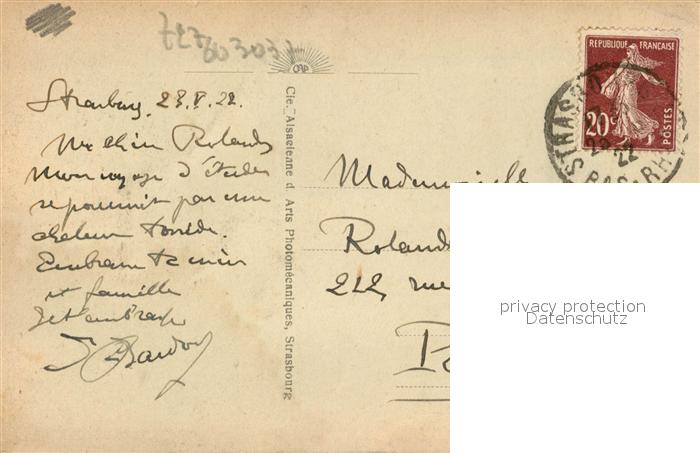 Strasbourg, 23.V.22.
Ma chère Rolande
Mon voyage d'études
se poursuit par une
chaleur torride.
Embrasse ta mère
et famille
Je t'embrasse
Cie. Alsacienne d Arts Photomécaniques, Strasbourg
REPUBLIQUE FRANÇAISE
20c
POSTES
STRASBO
22
BAS-RH
Mademoiselle
Rolande
212, rue
privacy protection
Datenschutz